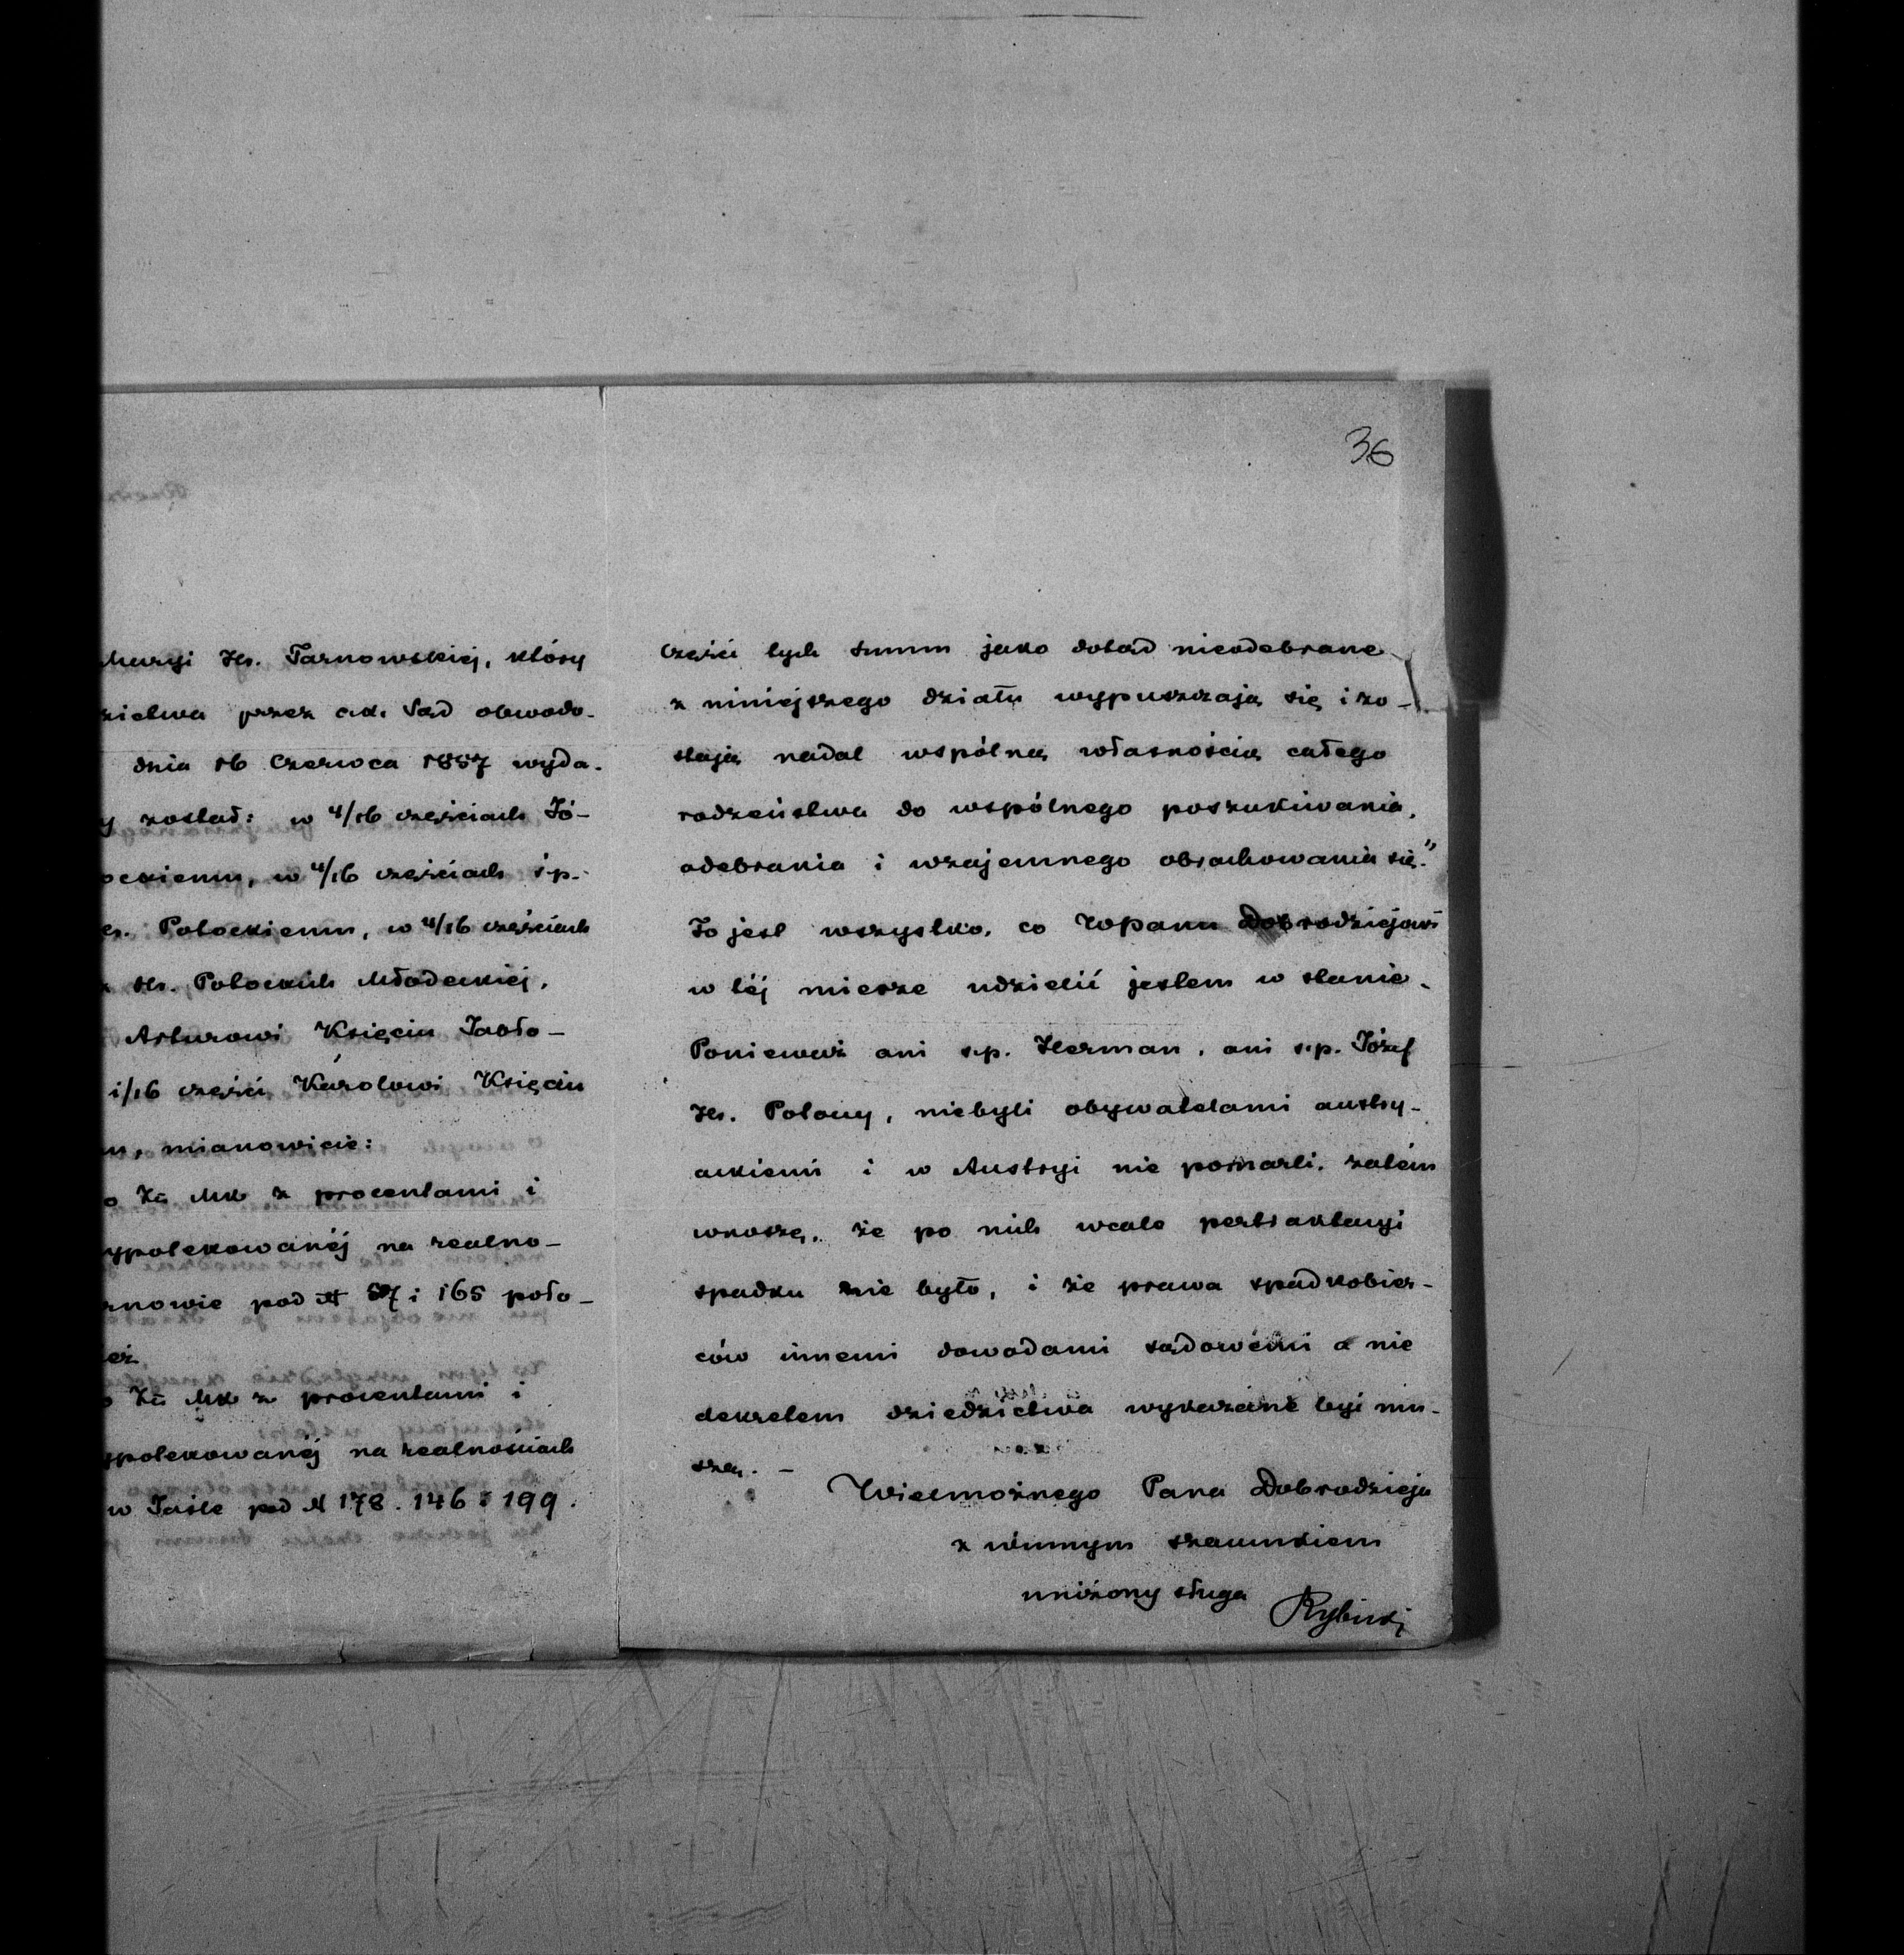 Maryi Hr. Tarnowskiej, który
przez c.k. Sąd obwodo-
dnia 16 Czerwca 1857 wyda-
został: w 4/16 częściach Jó-
w 4/16 częściach ś.p.
Potockiemu, w 4/16 częściach
Hr. Potockich Młodeckiej,
Arturowi Księciu Jabło-
1/16 części Karolowi Księciu
mianowicie:
Mk z procentami i
ypotekowanéj na realno-
rnowie pod N i 165 poło-
Mk z procentami i
ypotekowanéj na realnościach
w Jaśle pod N 178. 146 i 199.
36
części tych summ jako dotąd nieodebrane
z niniejszego działu wypuszczają się i zo-
stają nadal wspólną własnością całego
rodzeństwa do wspólnego poszukiwania,
odebrania i wzajemnego obrachowania się."
To jest wszystko, co WPanu Dobrodziejowi
w téj mierze udzielić jestem w stanie.
Ponieważ ani ś.p. Herman, ani ś.p. Józef
Hr. Potoccy, niebyli obywatelami austry-
ackiemi i w Austryi nie pomarli, zatém
wnoszę, że po nich wcale pertraktacyi
spadku nie było, i że prawa spadkobier-
ców innemi dowodami sądowémi a nie
dekretem dziedzictwa wykazane być mu-
szą. -
Wielmożnego Pana Dobrodzieja
z winnym szacunkiem
uniżony sługa Rybicki